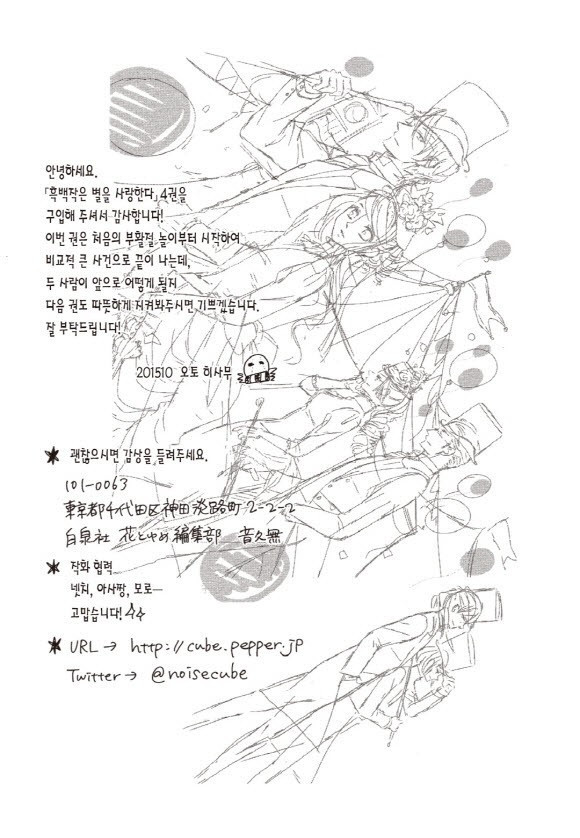 안녕하세요.
「흑백작은 별을 사랑한다」 4권을
구입해 주셔서 감사합니다!
이번 권은 처음의 부활절 놀이부터 시작하여
비교적 큰 사건으로 끝이 나는데,
두 사람이 앞으로 어떻게 될지
다음 권도 따뜻하게 지켜봐주시면 기쁘겠습니다.
잘 부탁드립니다!
201510 오토 히사무
★ 괜찮으시면 감상을 들려주세요.
101-0063
東京都千代田区神田淡路町2-2-2
白泉社 花とゆめ編集部 音久無
★ 작화 협력
넷치, 아사짱, 모로―
고맙습니다!
★ URL → http://cube.pepper.jp
Twitter → @noisecube